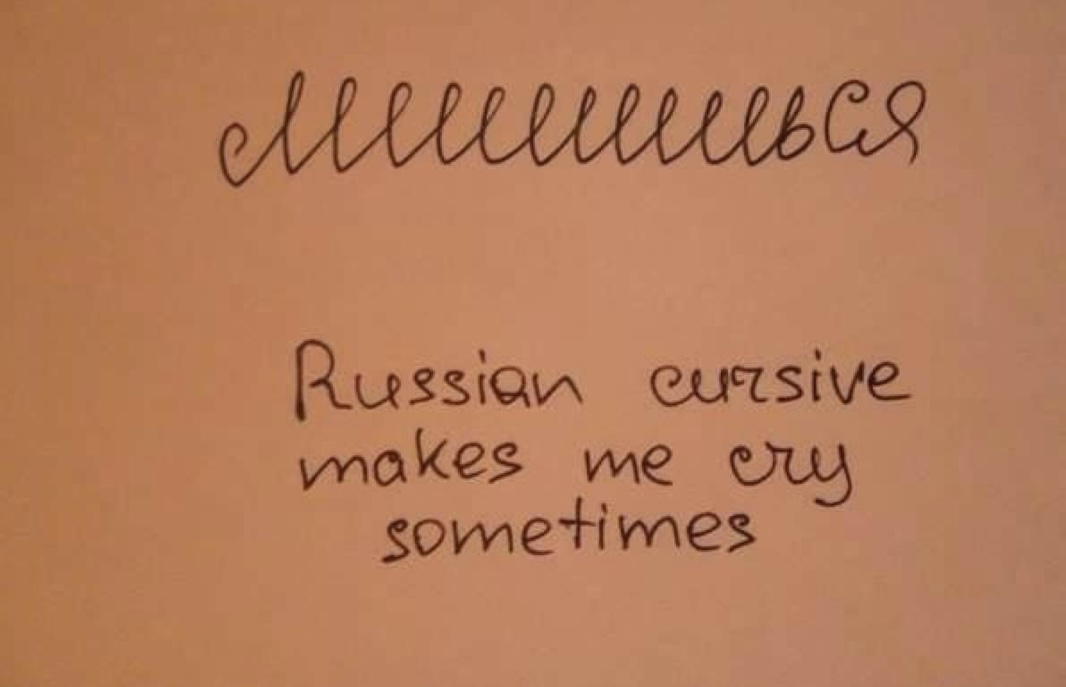 Russian cursive
makes me cry
sometimes